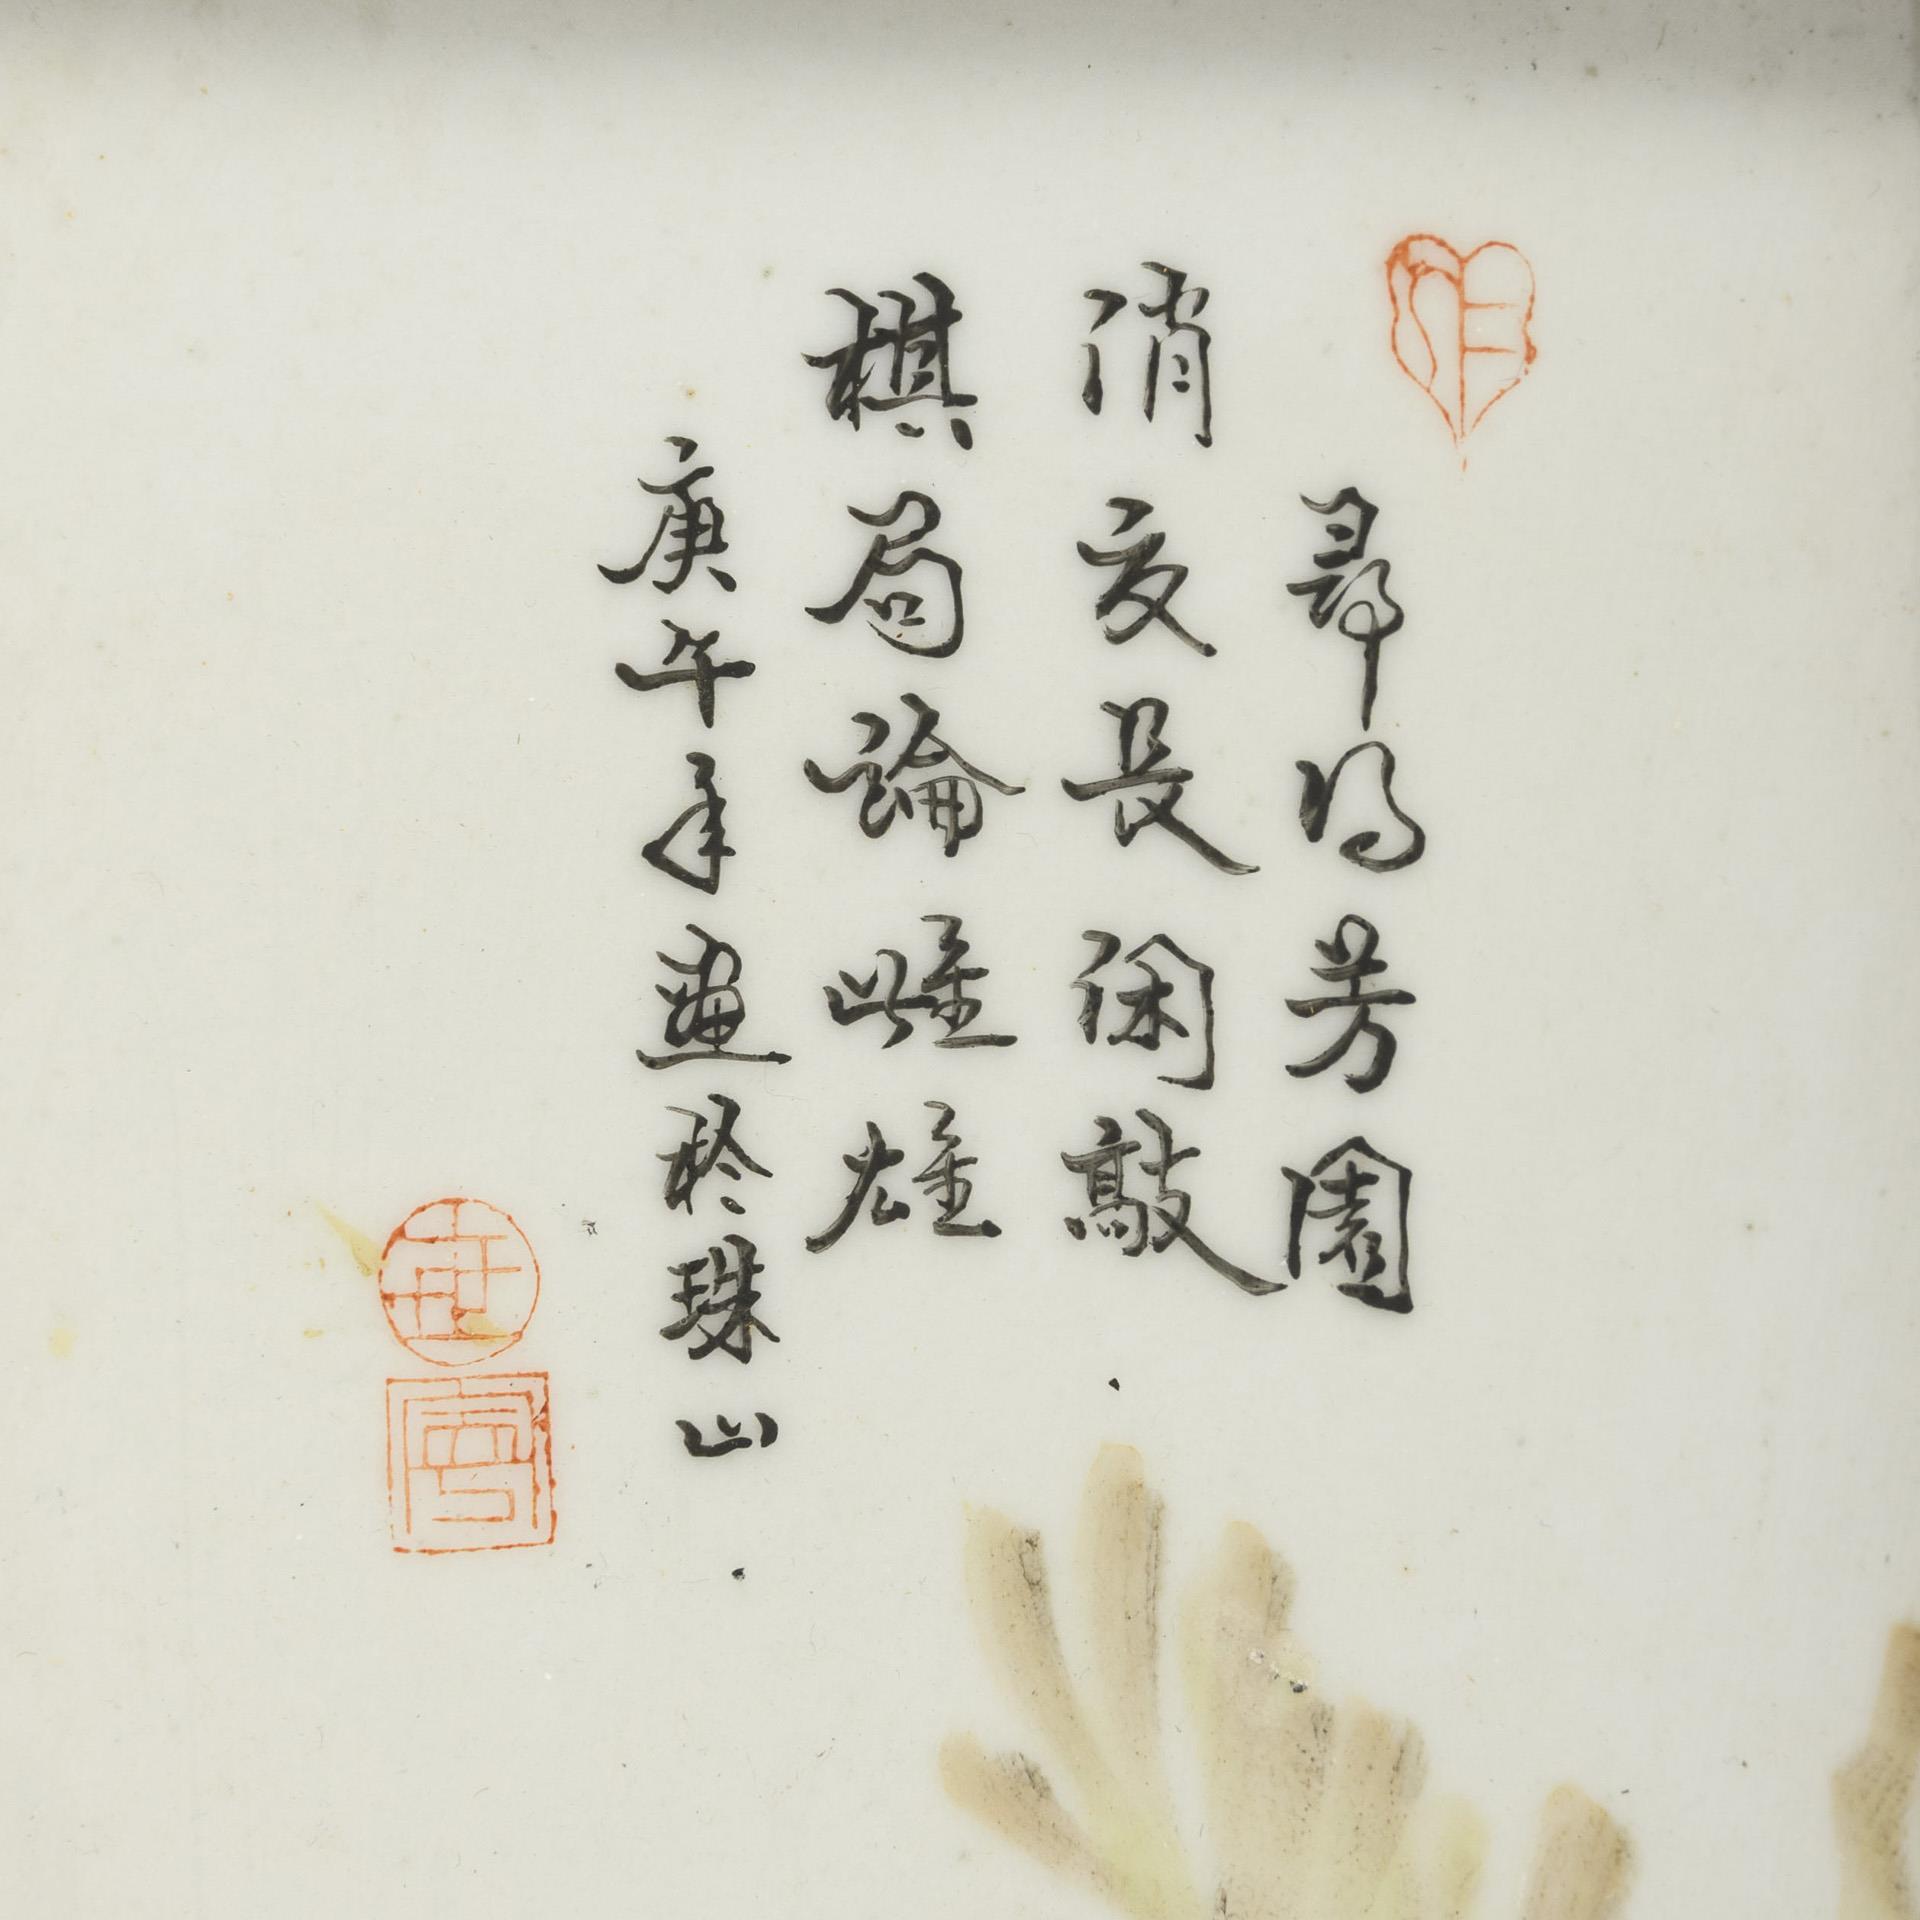 尋得芳園
消夏長閑敲
棋局論雌雄
庚午年畫於珠山